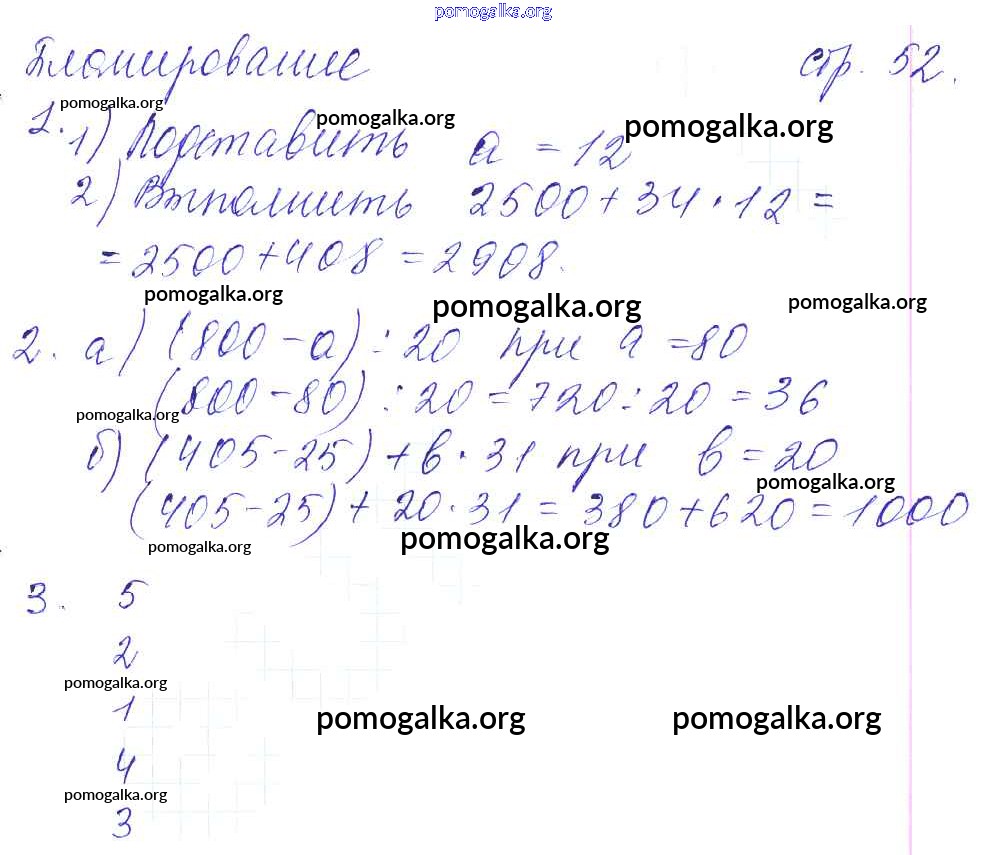 pomogalka.org
Планирование стр. 52.
pomogalka.org
pomogalka.org
pomogalka.org
1. 1) Подставить a = 12
2) Выполнить 2500 + 34 · 12 =
= 2500 + 408 = 2908.
pomogalka.org
pomogalka.org
pomogalka.org
2. а) (800 - a) : 20 при a = 80
(800 - 80) : 20 = 720 : 20 = 36
pomogalka.org
б) (405 - 25) + в · 31 при в = 20
pomogalka.org
(405 - 25) + 20 · 31 = 380 + 620 = 1000
pomogalka.org
pomogalka.org
3. 5
2
pomogalka.org
1
pomogalka.org
pomogalka.org
4
pomogalka.org
3